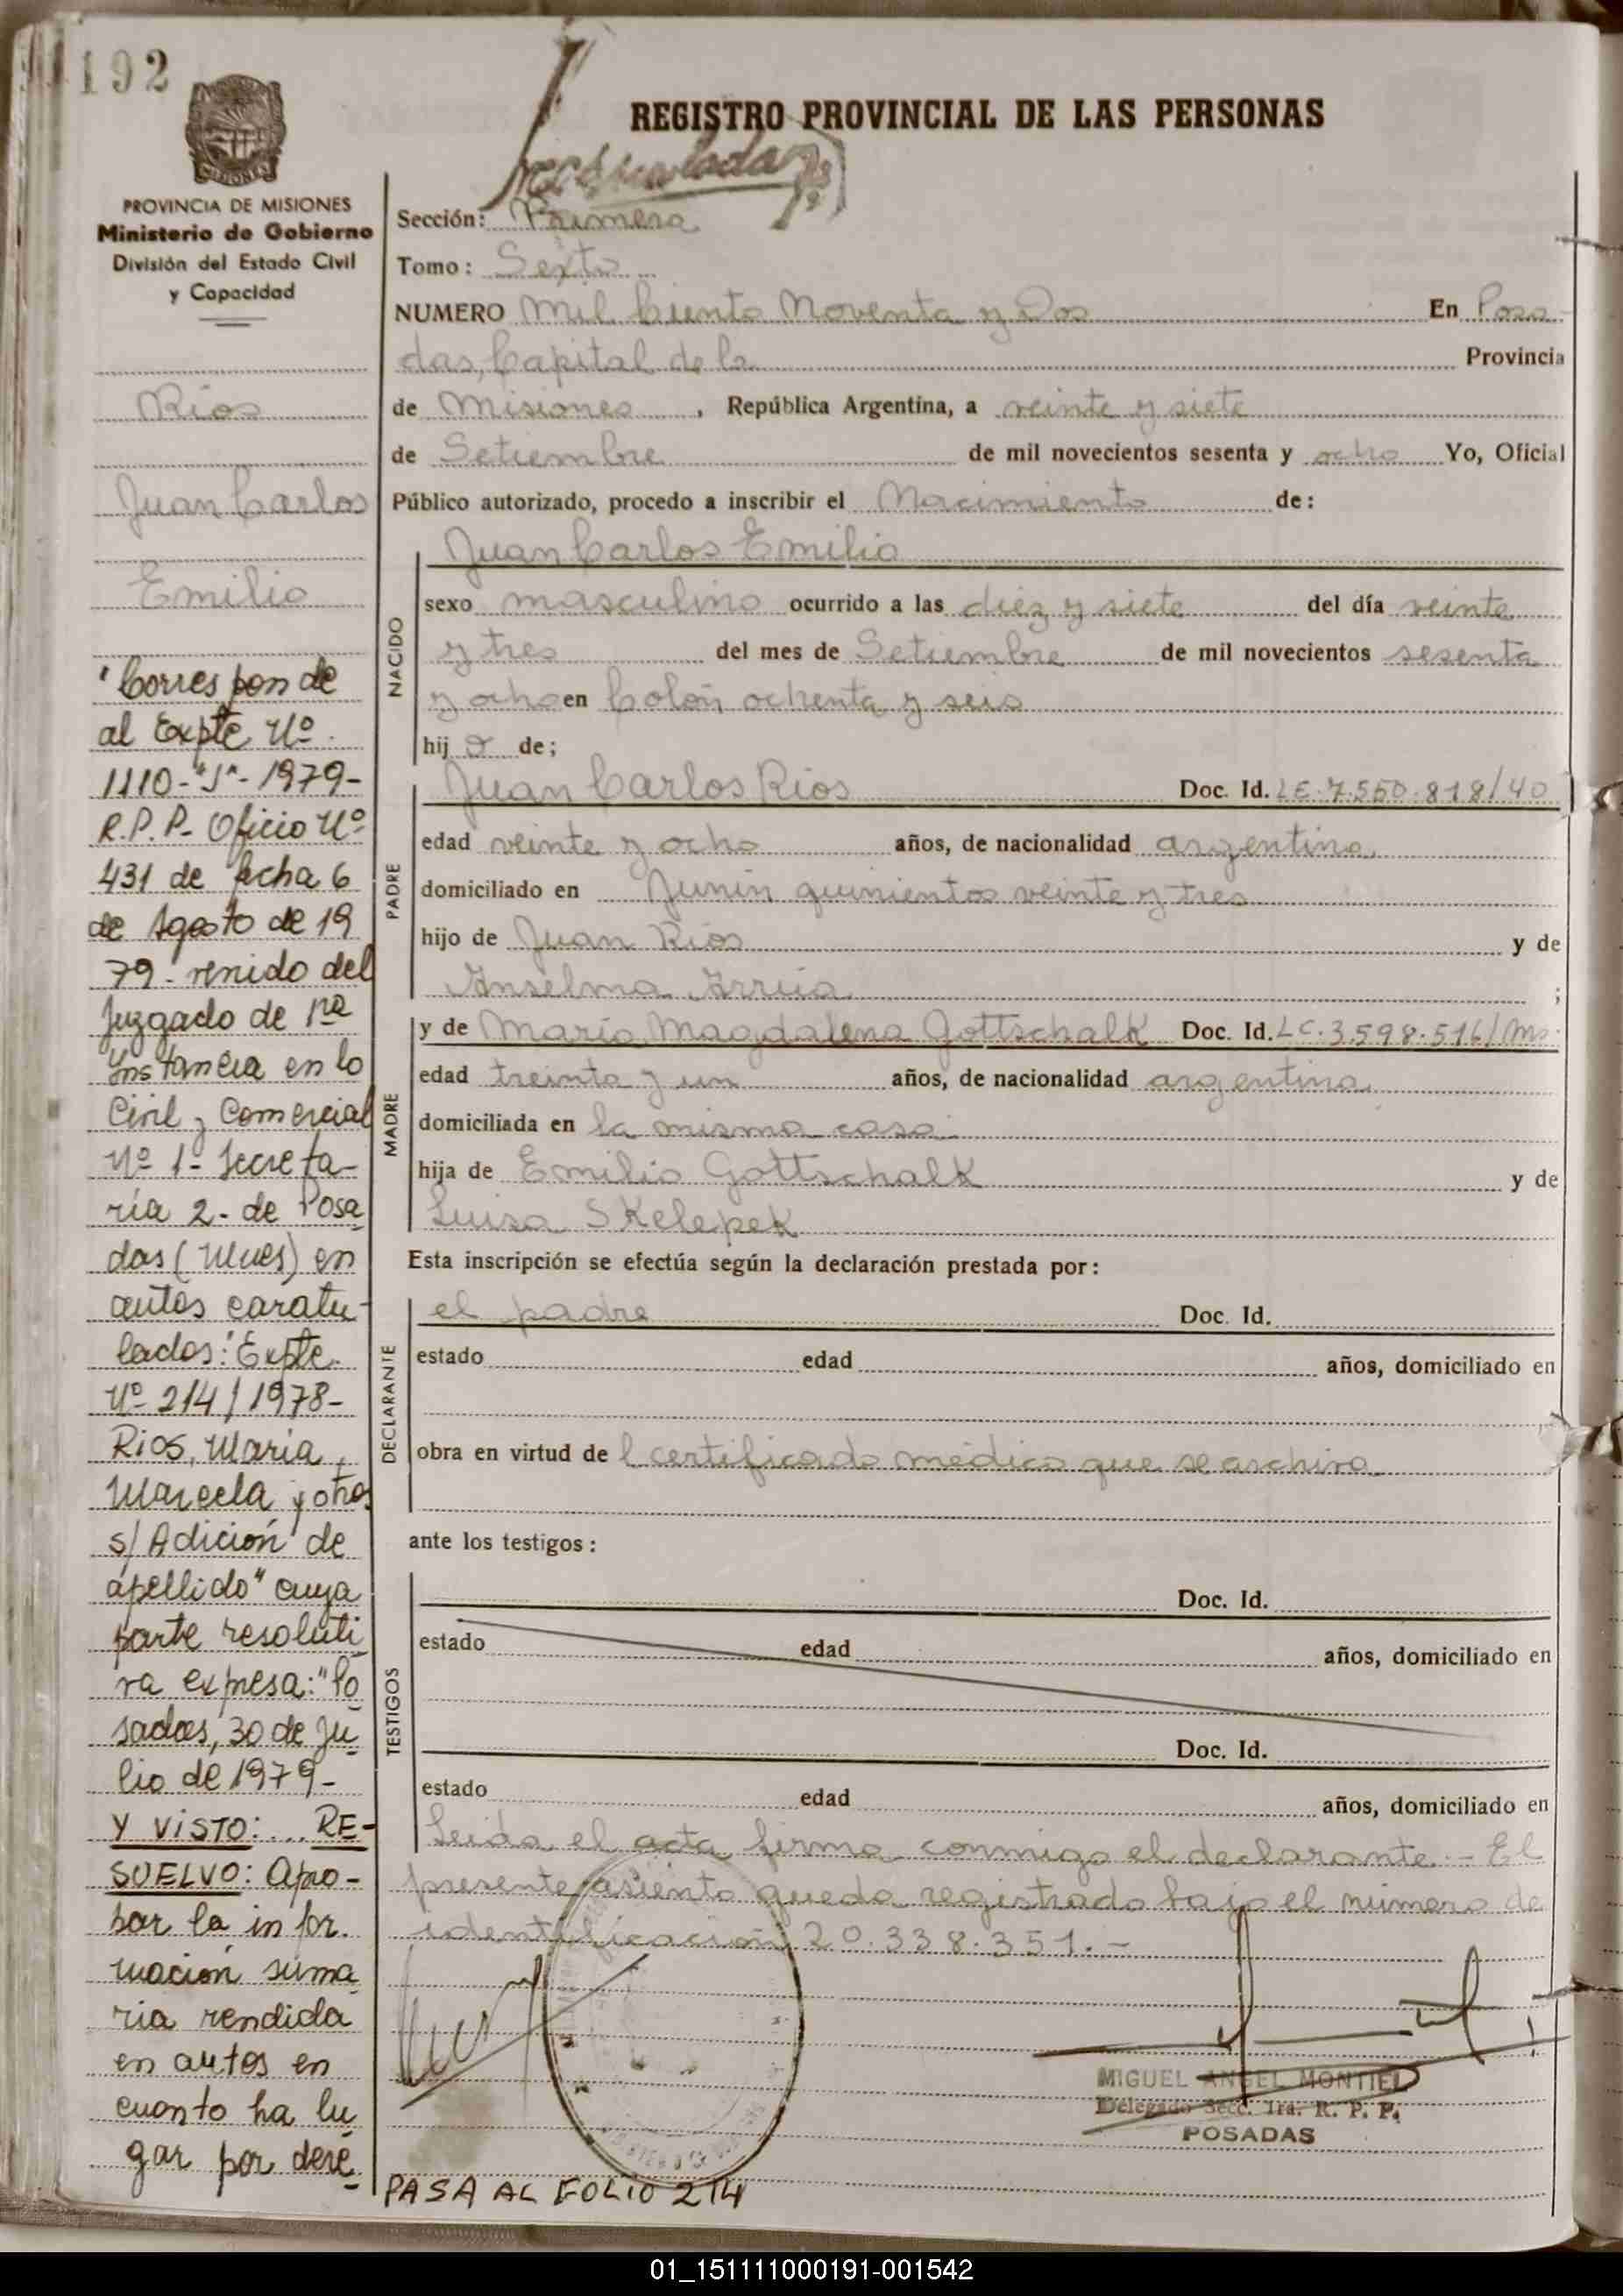 192
REGISTRO PROVINCIAL DE LAS PERSONAS
PROVINCIA DE MISIONES
Ministerio de Gobierno
División del Estado Civil
y Capacidad
Rios
Juan Carlos
Emilio
"Corresponde
al Expte Nº
1110-"J"-1979-
R.P.P. Oficio Nº
431 de fecha 6
de Agosto de 19
79- venido del
Juzgado de 1ra
Instancia en lo
Civil y Comercial
Nº 1- Secreta-
ría 2- de Posa
das (Mnes) en
autos caratu-
lados: "Expte.
Nº 214/1978-
Rios, María
Marcela y otros
s/ Adición de
apellido" cuya
parte resoluti
va expresa: "Po
sadas, 30 de Ju
lio de 1979-
Y VISTO:... RE-
SUELVO: Apro-
bar la infor.
mación suma
ria rendida
en autos en
cuanto ha lu
gar por dere
Sección: Primera
Tomo: Sexto
NUMERO Mil Ciento Noventa y Dos En Posa-
das, Capital de la Provincia
de Misiones, República Argentina, a veinte y siete
de Setiembre de mil novecientos sesenta y ocho Yo, Oficial
Público autorizado, procedo a inscribir el Nacimiento de:
NACIDO
Juan Carlos Emilio
sexo masculino ocurrido a las diez y siete del día veinte
y tres del mes de Setiembre de mil novecientos sesenta
y ocho en Colón ochenta y seis
hijo de;
PADRE
Juan Carlos Rios Doc. Id. LE.7.550.818/40
edad veinte y ocho años, de nacionalidad argentina
domiciliado en Junín quinientos veinte y tres
hijo de Juan Rios y de
Anselma Arrúa ;
MADRE
y de María Magdalena Gottschalk Doc. Id. LC.3.598.516/Ms.
edad treinta y un años, de nacionalidad argentina
domiciliada en la misma casa
hija de Emilio Gottschalk y de
Luisa Skelepek
Esta inscripción se efectúa según la declaración prestada por:
DECLARANTE
el padre Doc. Id.
estado edad años, domiciliado en
obra en virtud del certificado médico que se archiva
ante los testigos:
TESTIGOS
Doc. Id.
estado edad años, domiciliado en
Doc. Id.
estado edad años, domiciliado en
Leida el acta firma conmigo el declarante.- El
presente asiento queda registrado bajo el número de
identificación 20.338.351.-
MIGUEL ANGEL MONTIEL
Delegado Secc. 1ra. R. P. P.
POSADAS
PASA AL FOLIO 214
01_151111000191-001542